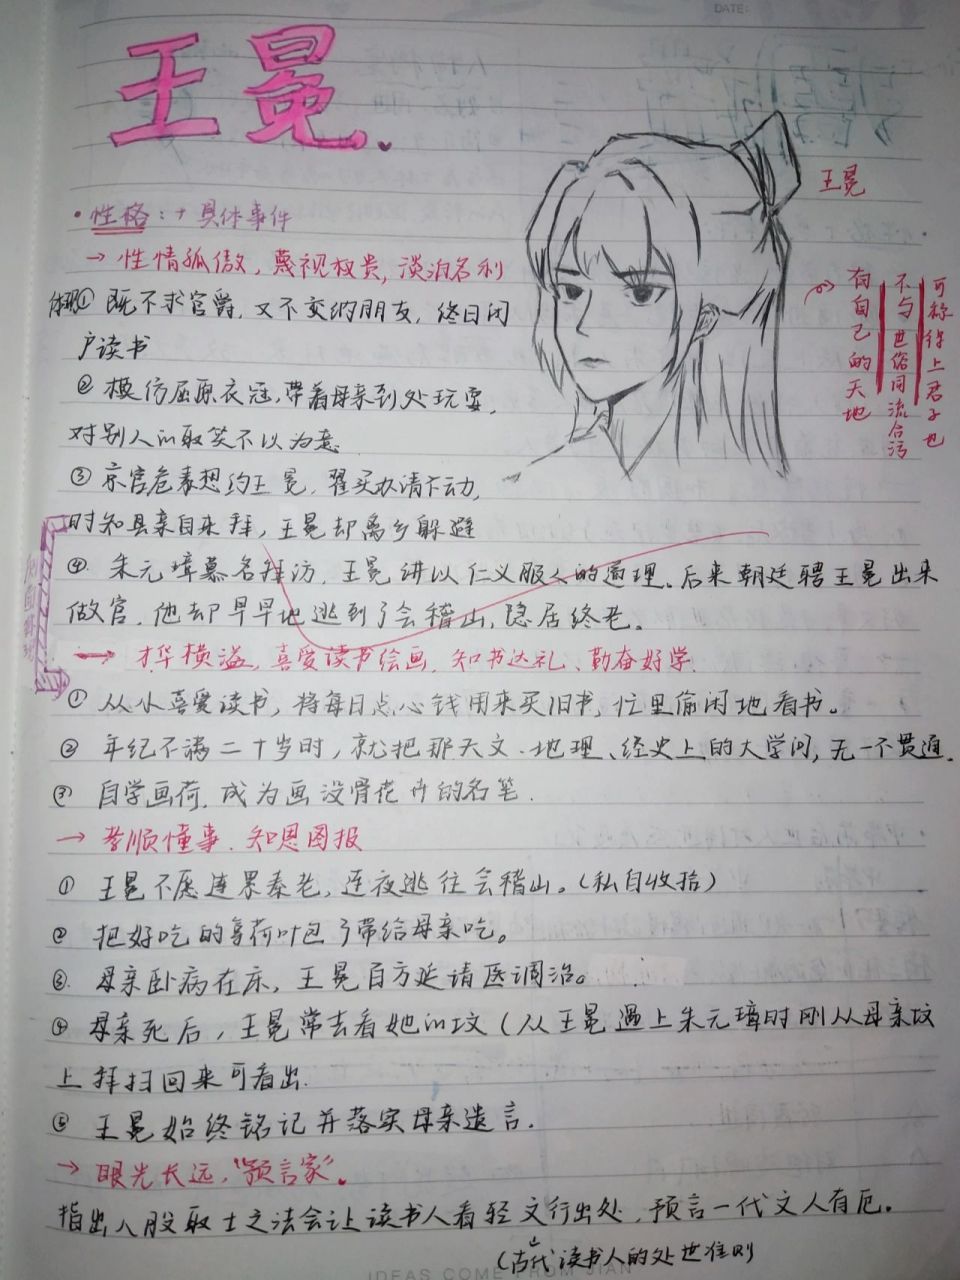 DATE:
王冕.
王冕
•性格：+具体事件
→性情孤傲，蔑视权贵，淡泊名利
有自己的天地
不与世俗同流合污
可称得上君子也
体现① 既不求官爵，又不交纳朋友，终日闭
户读书
② 模仿屈原衣冠，带着母亲到处玩耍，
对别人的取笑不以为意
③ 京官危素想约王冕，翟买办请不动，
时知县亲自来拜，王冕却离乡躲避
④. 朱元璋慕名拜访，王冕讲以仁义服人的道理、后来朝廷聘王冕出来
做官，他却早早地逃到了会稽山，隐居终老。
→ 才华横溢，喜爱读书绘画，知书达礼、勤奋好学.
① 从小喜爱读书，将每日点心钱用来买旧书，忙里偷闲地看书。
② 年纪不满二十岁时，就把那天文、地理、经史上的大学问，无一不贯通.
③ 自学画荷，成为画没骨花卉的名笔.
→ 孝顺懂事、知恩图报
① 王冕不愿连累秦老，连夜逃往会稽山。（私自收拾）
② 把好吃的拿荷叶包了带给母亲吃。
③. 母亲卧病在床，王冕百方延请医调治。
④ 母亲死后，王冕常去看她的坟（从王冕遇上朱元璋时刚从母亲坟
上拜扫回来可看出.
⑤ 王冕始终铭记并落实母亲遗言.
→ 眼光长远，“预言家”。
指出八股取士之法会让读书人看轻文行出处，预言一代文人有厄。
（古代读书人的处世准则
IDEAS COME FROM JIAN